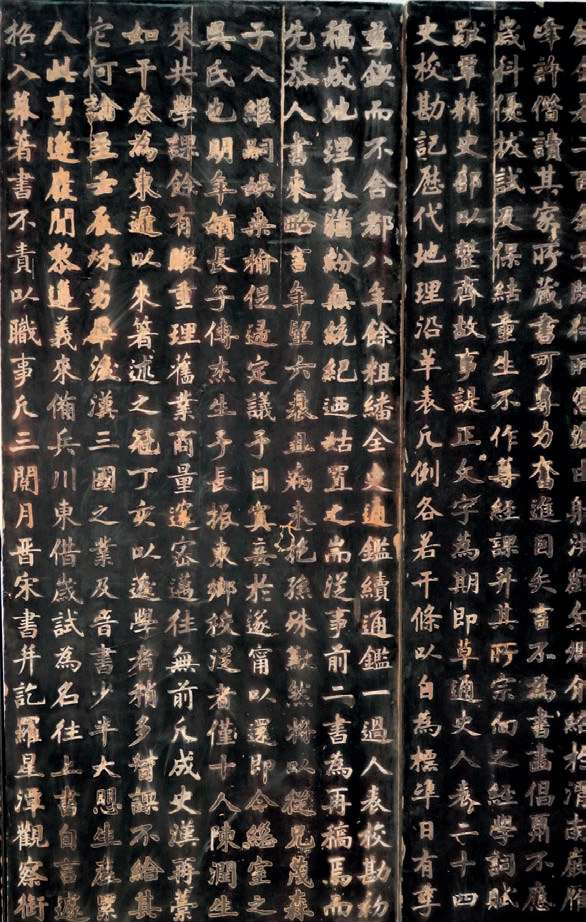 峰許借讀其家所藏書可身力奮進目矢言不為書畫倡不應
歲科優拔試及保結童生不作尋經課并其所宗仰之經學詞賦
畢精史部以整齊故事諟正文字為期即草通史人表二十四
史校勘記歷代地理沿革表凡例各若干條以自為標準日有
鍥而不舍都八年餘粗繙全史通鑑續通鑑一過人表校勘初
稿成地理表猶紛無統紀迺姑置之耑從事前二書為再稿焉而
先恭人書來略言年望六衰且病未抱孫殊歉然將以從兄茂森
子入繼嗣娛桑榆促遄定議予自妾於遂甯以還即令絕室之
吳氏也明年嫡長子傳杰生予長振東鄉校從者僅十人陳潤生
來共學課餘有暇重理舊業商量邃密邁往無前凡成史漢再稾
如干卷為東遊以來箸述之冠丁亥以學者稍多督課不給其
它何論至壬辰秌畢後漢三國之業及晉書少半大恩生產累
人此事遂廢聞黎遵義來備兵川東借歲試為名往上書自言遂
招入幕著書不責以職事凡三閱月晉宋書并訖羅星潭觀察銜